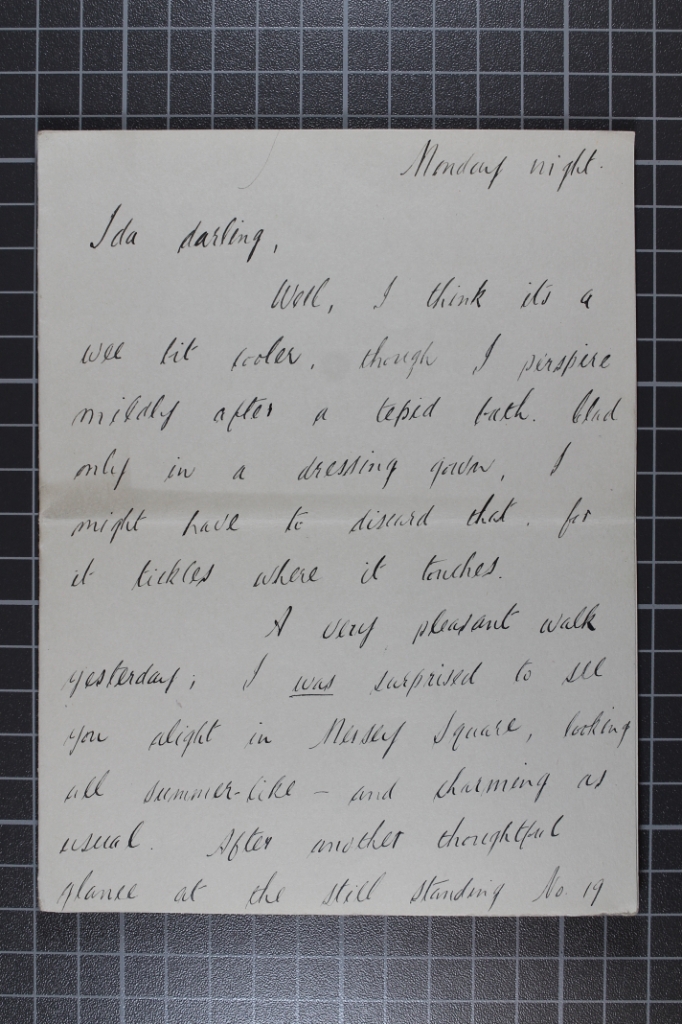 Monday night.
Ida darling,
Well, I think it's a
wee bit cooler, though I perspire
mildly after a tepid bath. Clad
only in a dressing gown, I
might have to discard that, for
it tickles where it touches.
A very pleasant walk
yesterday; I was surprised to see
you alight in Mersey Square, looking
all summer-like – and charming as
usual. After another thoughtful
glance at the still standing No. 19